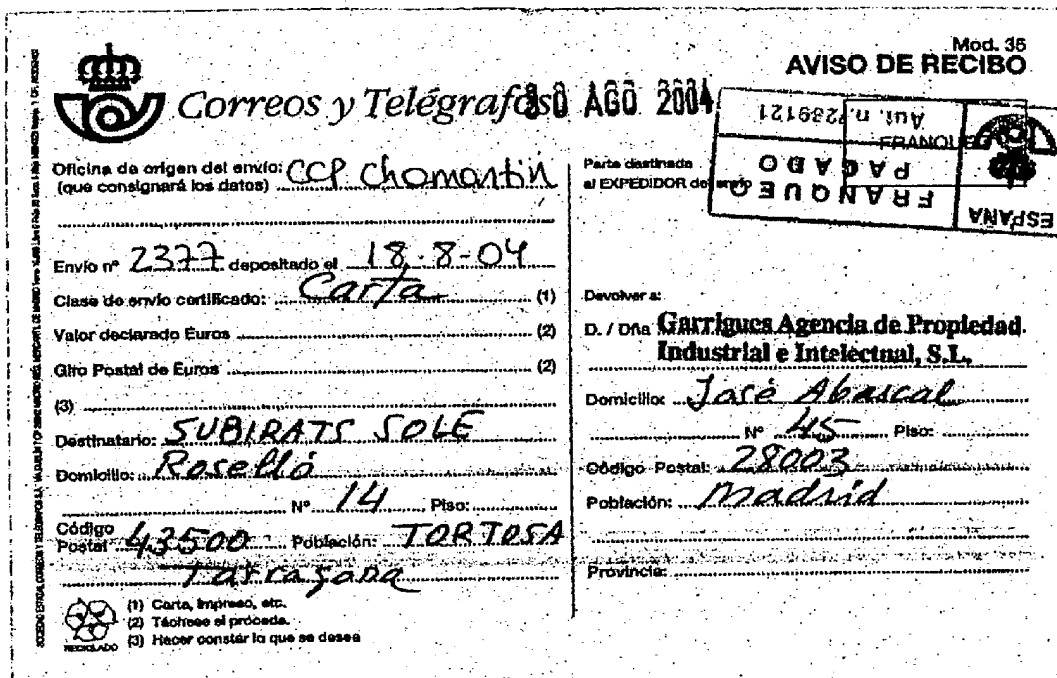 Mod. 35
AVISO DE RECIBO
Correos y Telégrafos
AGO 2004
Aut. n.
FRANQUEO
PAGADO
ESPAÑA
Oficina de origen del envío: CCP Chamartín
(que consignará los datos)
Envío nº 2377 depositado el 18-8-04
Clase de envío certificado: Carta (1)
Valor declarado Euros (2)
Giro Postal de Euros (2)
(3)
Destinatario: SUBIRATS SOLE
Domicilio: Roselló
Nº 14 Piso:
Código
Postal 43500 Población: TORTOSA
Tarragona
RECICLADO
(1) Carta, Impreso, etc.
(2) Táchese si procede.
(3) Hacer constar lo que se desea
Parte destinada
al EXPEDIDOR del envío
Devolver a:
D. / Dña Garrigues Agencia de Propiedad
Industrial e Intelectual, S.L.
Domicilio: José Abascal
Nº 45 Piso:
Código Postal: 28003
Población: Madrid
Provincia: